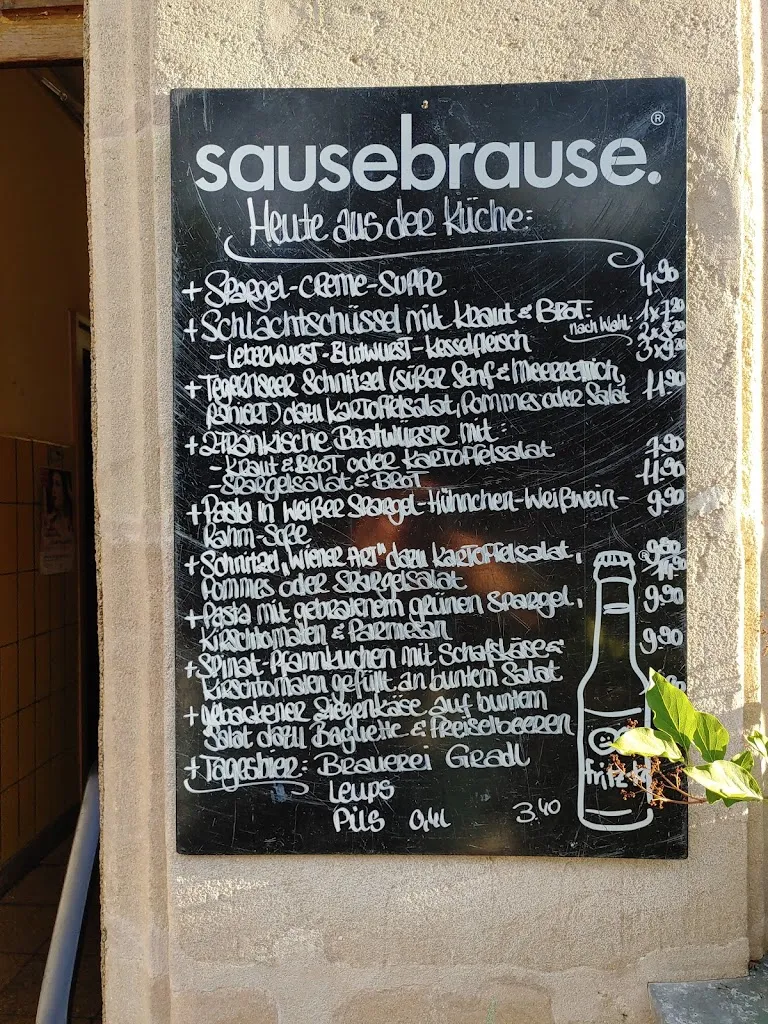 sausebrause.®
Heute aus der Küche:
+ Spargel-Creme-Suppe 4,90
+ Schlachtschüssel mit Kraut & Brot: 1x7,20
nach Wahl: 2x8,20
- Leberwurst - Blutwurst - Kesselfleisch 3x9,20
+ Tegernseer Schnitzel (süßer Senf & Meerrettich, 11,90
paniert) dazu Kartoffelsalat, Pommes oder Salat
+ 2 Fränkische Bratwürste mit:
- Kraut & Brot oder Kartoffelsalat 7,90
- Spargelsalat & Brot 11,90
+ Pasta in weißer Spargel-Hühnchen-Weißwein- 9,90
Rahm-Soße
+ Schnitzel "Wiener Art" dazu Kartoffelsalat,
Pommes oder Spargelsalat
+ Pasta mit gebratenem grünen Spargel, 9,90
Kirschtomaten & Parmesan
+ Spinat-Pfannkuchen mit Schafskäse & 9,90
Kirschtomaten gefüllt an buntem Salat
+ gebackener Ziegenkäse auf buntem
Salat dazu Baguette & Preiselbeeren
+ Tagesbier: Brauerei Gradl
Leups
Pils 0,4L 3.40